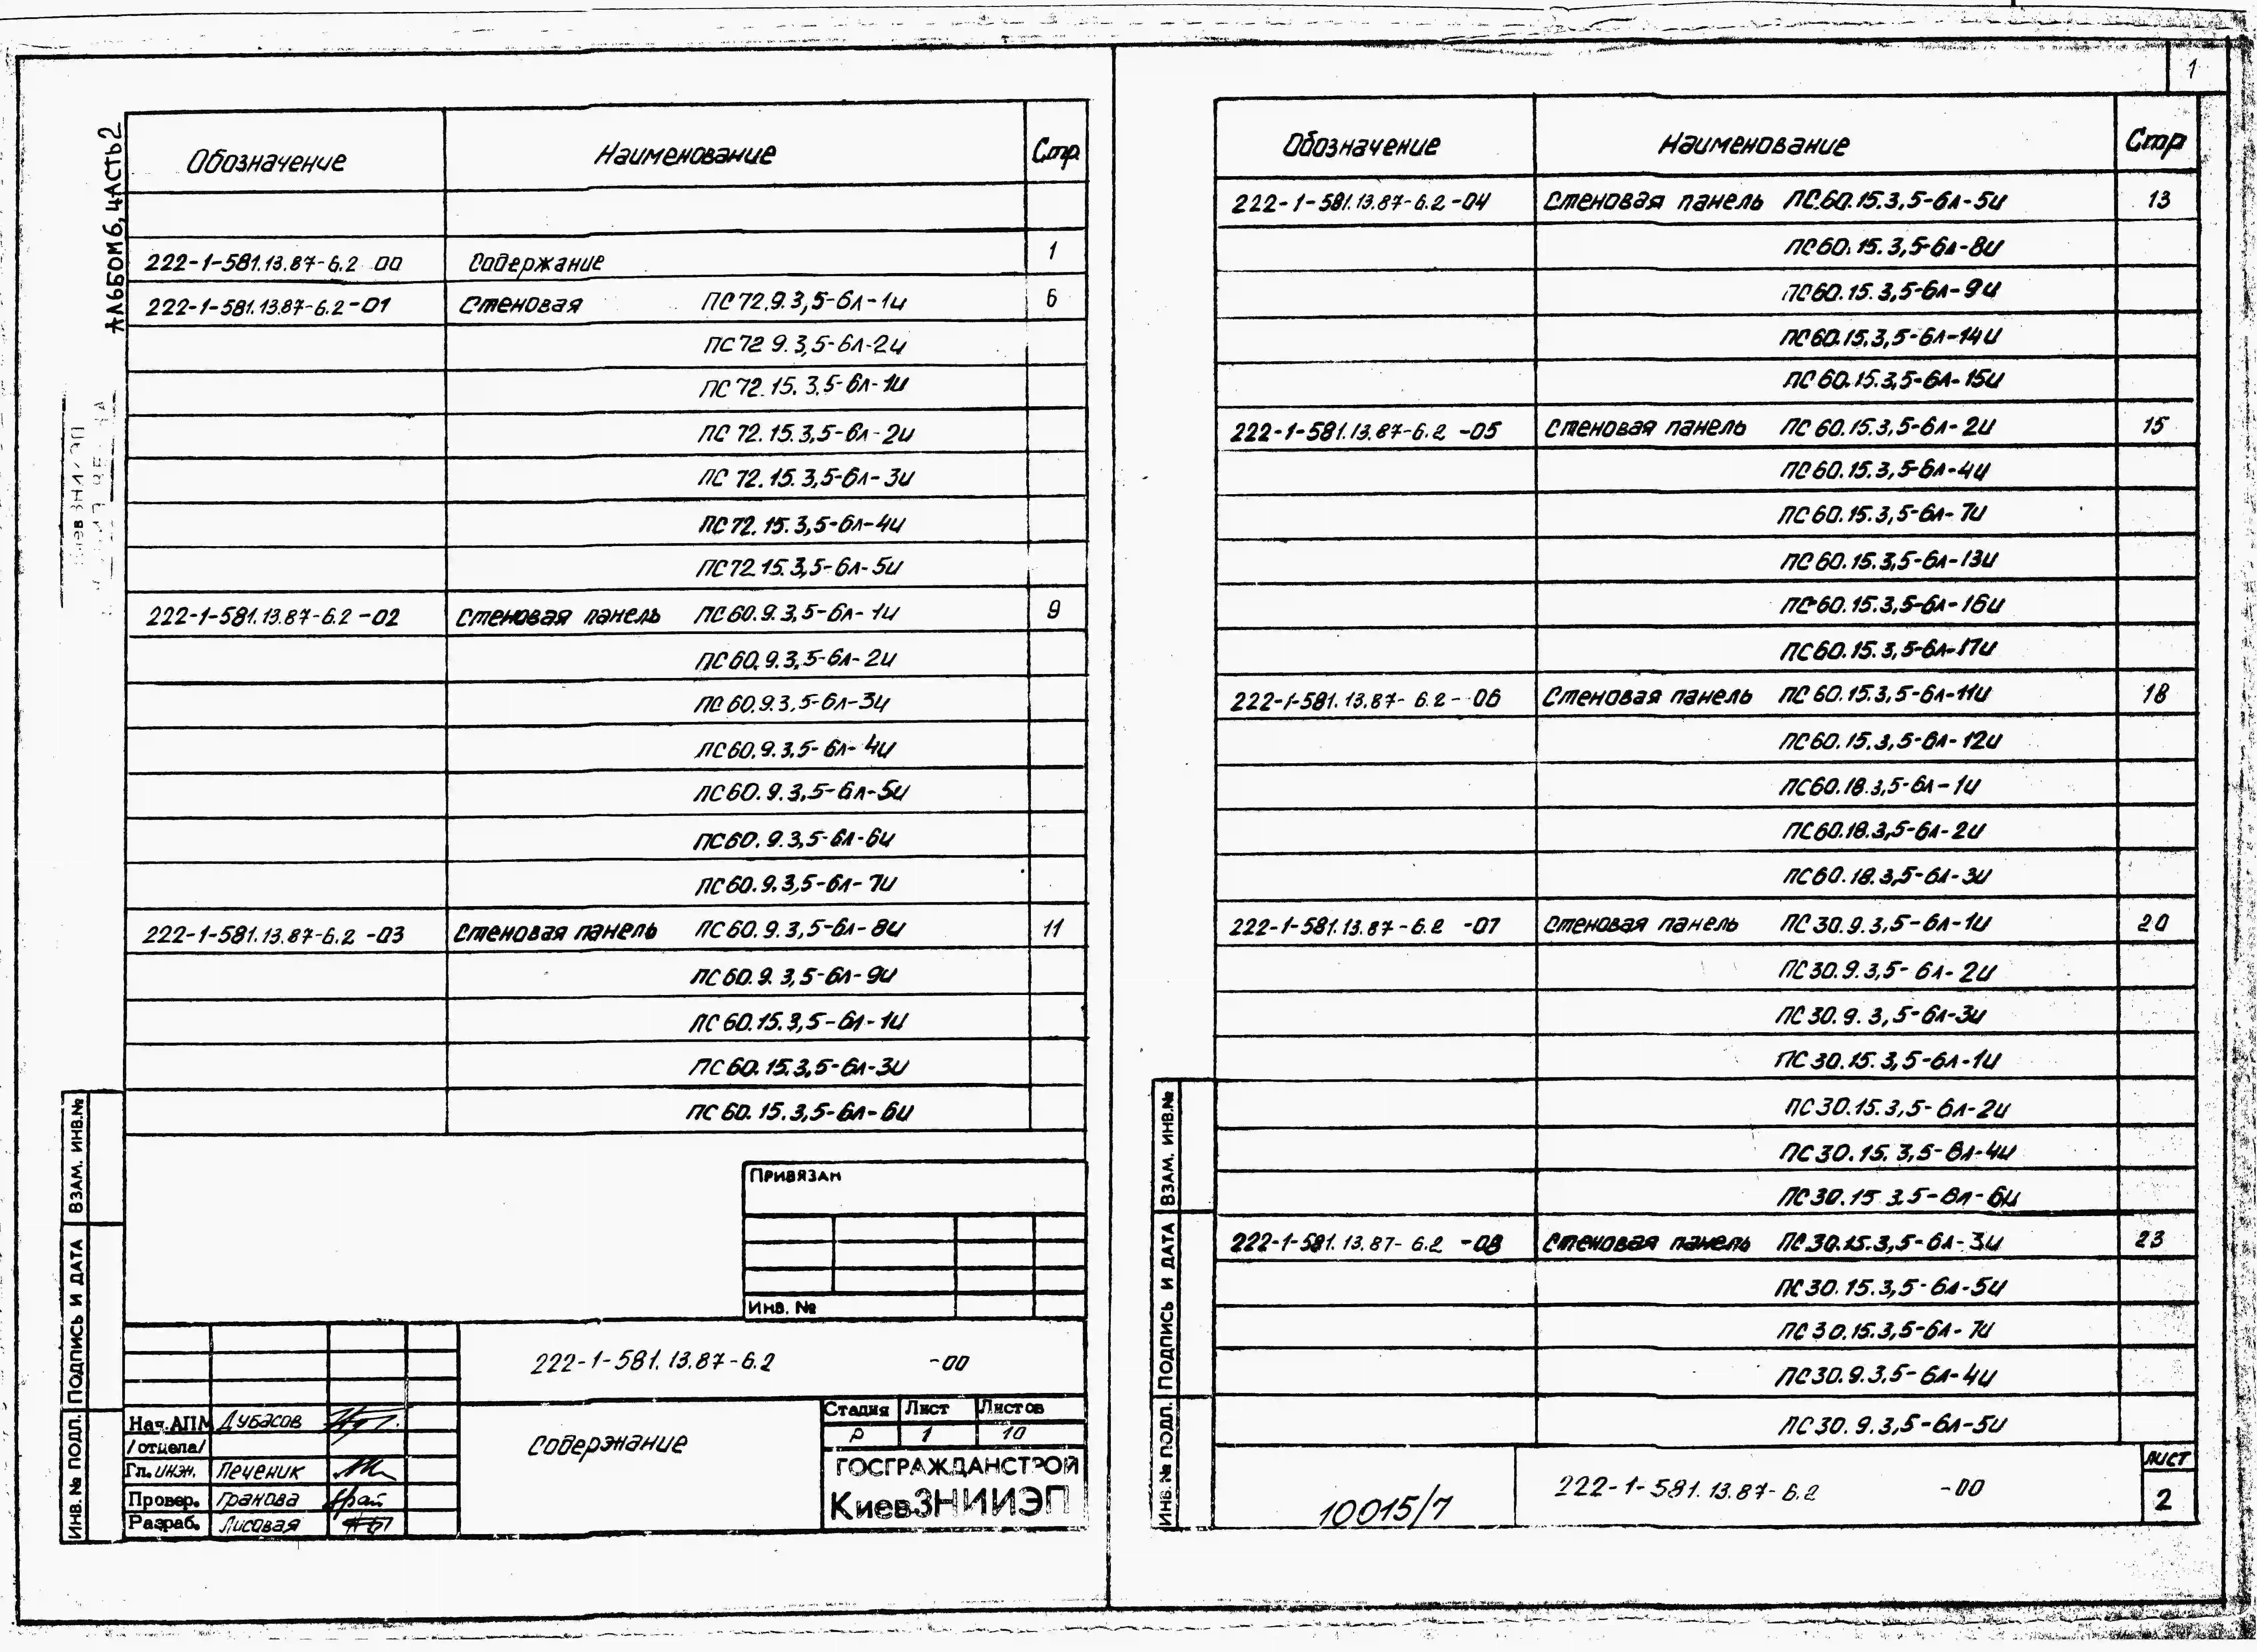 1
АЛЬБОМ 6, ЧАСТЬ 2
Обозначение Наименование Стр.
222-1-581.13.87-6.2 00 Содержание 1
222-1-581.13.87-6.2-01 Стеновая ПС72.9.3,5-6л-1и 6
ПС72 9.3,5-6л-2и
ПС72.15.3,5-6л-1и
ПС72.15.3,5-6л-2и
ПС72.15.3,5-6л-3и
ПС72.15.3,5-6л-4и
ПС72.15.3,5-6л-5и
222-1-581.13.87-6.2-02 Стеновая панель ПС60.9.3,5-6л-1и 9
ПС60.9.3,5-6л-2и
ПС60.9.3,5-6л-3и
ПС60.9.3,5-6л-4и
ПС60.9.3,5-6л-5и
ПС60.9.3,5-6л-6и
ПС60.9.3,5-6л-7и
222-1-581.13.87-6.2-03 Стеновая панель ПС60.9.3,5-6л-8и 11
ПС60.9.3,5-6л-9и
ПС60.15.3,5-6л-1и
ПС60.15.3,5-6л-3и
ПС60.15.3,5-6л-6и
Привязан
Инв. №
222-1-581.13.87-6.2 -00
Содержание
Стадия Лист Листов
Р 1 10
ГОСГРАЖДАНСТРОЙ
КиевЗНИИЭП
Нач.АПМ Дубасов
/отдела/
Гл.инж. Печеник
Провер. Гранова
Разраб. Лисовая
ИНВ. № ПОДЛ. ПОДПИСЬ И ДАТА ВЗАМ. ИНВ.№
Обозначение Наименование Стр
222-1-581.13.87-6.2-04 Стеновая панель ПС60.15.3,5-6л-5и 13
ПС60.15.3,5-6л-8и
ПС60.15.3,5-6л-9и
ПС60.15.3,5-6л-14и
ПС60.15.3,5-6л-15и
222-1-581.13.87-6.2 -05 Стеновая панель ПС60.15.3,5-6л-2и 15
ПС60.15.3,5-6л-4и
ПС60.15.3,5-6л-7и
ПС60.15.3,5-6л-13и
ПС60.15.3,5-6л-16и
ПС60.15.3,5-6л-17и
222-1-581.13.87-6.2-06 Стеновая панель ПС60.15.3,5-6л-11и 18
ПС60.15.3,5-6л-12и
ПС60.18.3,5-6л-1и
ПС60.18.3,5-6л-2и
ПС60.18.3,5-6л-3и
222-1-581.13.87-6.2 -07 Стеновая панель ПС30.9.3,5-6л-1и 20
ПС30.9.3,5-6л-2и
ПС30.9.3,5-6л-3и
ПС30.15.3,5-6л-1и
ПС30.15.3,5-6л-2и
ПС30.15.3,5-6л-4и
ПС30.15 3.5-6л-6и
222-1-581.13.87-6.2 -08 Стеновая панель ПС30.15.3,5-6л-3и 23
ПС30.15.3,5-6л-5и
ПС30.15.3,5-6л-7и
ПС30.9.3,5-6л-4и
ПС30.9.3,5-6л-5и
10015/7
222-1-581.13.87-6.2 -00
ЛИСТ
2
ИНВ.№ ПОДЛ. ПОДПИСЬ И ДАТА ВЗАМ. ИНВ.№